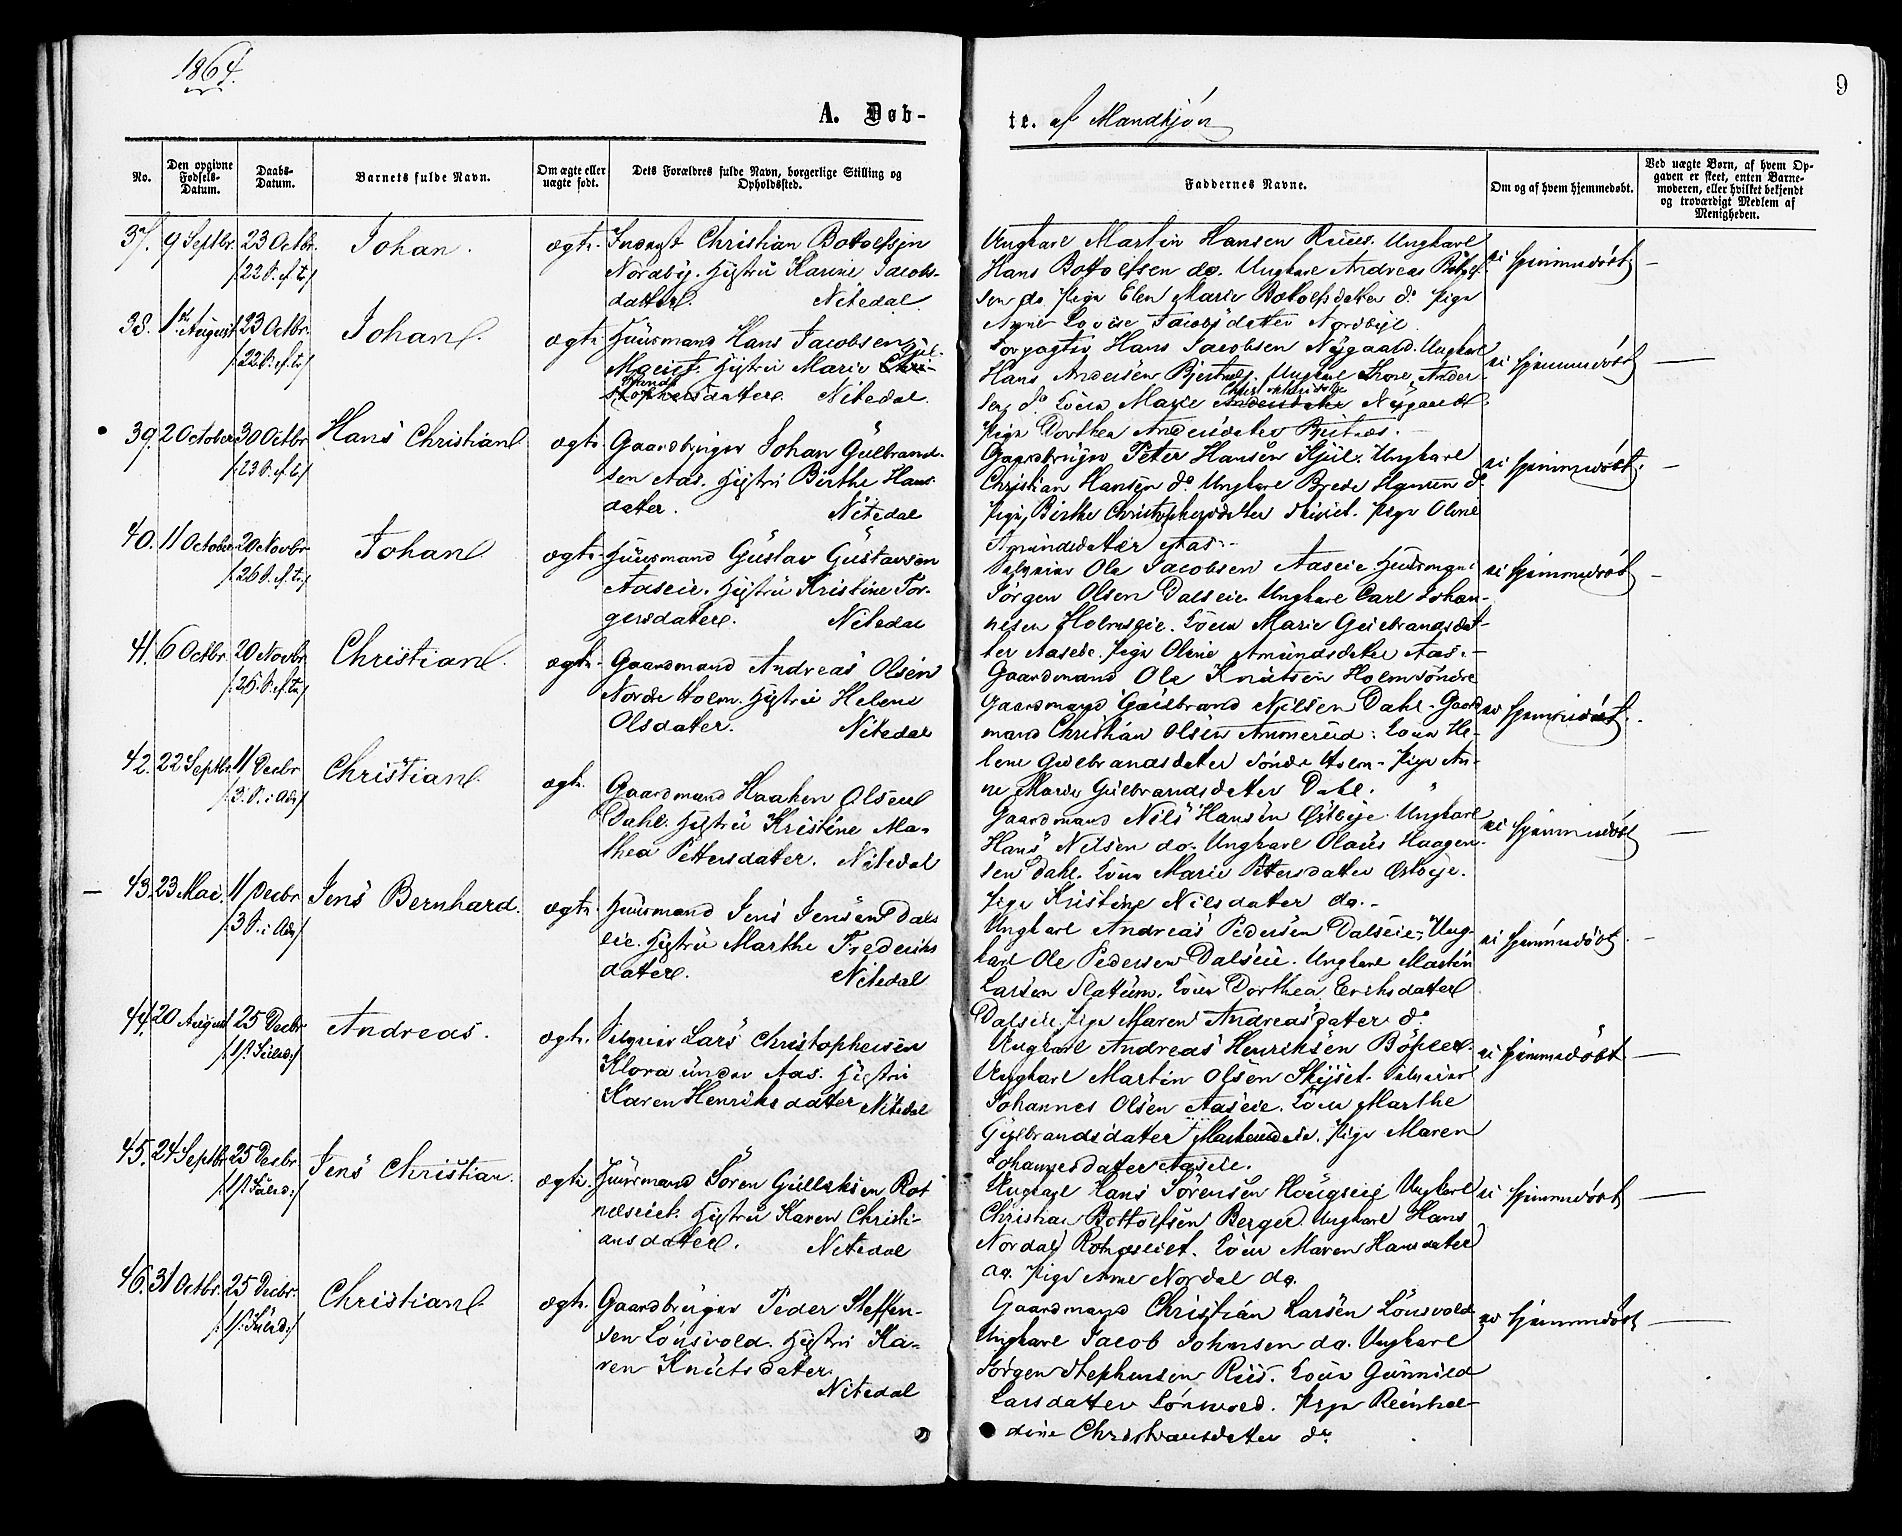 1864.
9
A. Døb-
te. af Mandkjön
No.
Den opgivne Fødsels-Datum.
Daabs-Datum.
Barnets fulde Navn.
Om ægte eller uægte født.
Dets Forældres fulde Navn, borgerlige Stilling og Opholdssted.
Faddernes Navne.
Om og af hvem hjemmedøbt.
Ved uægte Børn, af hvem Opgaven er skeet, enten Barnemoderen, eller hvilket bekjendt og troværdigt Medlem af Menigheden.
37. 9 Septbr. 23 Octbr. Johan. ægte. Christian Botolfsen
/22 S. e. t./ Nordby. Hustru Karine Jacobs-
datter. Nitedal
Ungkarl Martin Hansen Ungkarl
Hans Bottolfsen do. Ungkarl Andreas Botolf-
sen do. Pige Elen Marie Botolfsdatter do Pige
Anne Lovise Jacobsdatter Nordbye.
ei hjemmedøbt —
38. 1ste August 23 Octbr. Johan. ægte Huusmand Hans Jacobsen
/22 S. e. t./ Hustru Marie Gul-
brands datter. Nitedal.
Hans Jacobsen Nygaard. Ungkarl
Hans Andersen Ungkarl Thore Ander-
sen do Kone Marie Nygaard.
Pige Dorthea Andersdatter
ei hjemmedøbt —
39. 2 October 30 Octbr. Hans Christian ægte Gaardbruger Johan Gulbrand-
/23 S. e. t./ sen Aas. Hustru Birthe Hans-
datter. Nitedal
Gaardbruger Peter Hansen Kjul. Ungkarl
Christian Hansen do Ungkarl Brede Hansen do
Pige Birthe Christophersdatter Pige Olene
Amundsdatter Aas.
ei hjemmedøbt. —
40. 11 October 20 Novbr. Johan ægte Huusmand Gustav Gustavsen
/26 S. e. t./ Aaseie. Hustru Kristine Tor-
gersdatter. Nitedal
Ole Jacobsen Aaseie Huusmand
Jørgen Olsen Dalseie Ungkarl Carl Johan-
nesen Kone Marie Gulbrandsdat-
ter Aaseie. Pige Olene Amundsdatter Aas.
ei hjemmedøbt —
41. 6 Octbr. 20 Novbr. Christian. ægte. Gaardmand Andreas Olsen
/26 S. e. t./ Nordre Holm. Hustru Helene
Olsdatter. Nitedal
Gaardmand Ole Knutsen Holm søndre
Gaardmand Gulbrand Nilsen Dahl. Gaard-
mand Christian Olsen Kone He-
lene Gulbrandsdatter Søndre Holm. Pige An-
ne Marie Gulbrandsdatter Dahl.
ei hjemmedøbt.
42. 22 Septbr. 11 Decbr Christian. ægte. Gaardmand Haaken Olsen
/3 S. i Adv/ Dahl. Hustru Kristine Ma-
thea Pettersdatter. Nitedal
Gaardmand Nils Hansen Østbye. Ungkarl
Hans Nilsen do. Ungkarl Olaus Haagen-
sen Dahl. Kone Marie Petersdatter Østbye.
Pige Kristine Nilsdatter do.
ei hjemmedøbt —
43. 23 Mai. 11 Decbr Jens Bernhard. ægte. Huusmand Jens Jensen Dals-
/3 S. i Adv/ eie. Hustru Marthe Frederiks
datter. Nitedal
Ungkarl Andreas Pedersen Dalseie. Ung-
karl Ole Pedersen Dalseie. Ungkarl Martin
Larsen Slatum. Kone Dorthea Eriksdatter
Dalseie. Pige Maren Andreasdatter do
ei hjemmedøbt —
44. 20 August 25 Decbr Andreas. ægte. Lars Christophersen
/1ste Juled:/ Klora under Aas. Hustru
Karen Henriksdatter Nitedal
Ungkarl Andreas Henriksen
Ungkarl Martin Olsen Skyset.
Johannes Olsen Aaseie. Kone Marthe
Gulbrandsdatter Pige Maren
Johannesdatter Aaseie.
ei hjemmedøbt —
45. 24 Septbr. 25 Decbr Jens Christian. ægte. Huusmand Søren Gulleksen Rot
/1ste Juled:/ næseiet. Hustru Karen Christi-
ansdatter. Nitedal
Ungkarl Hans Sørensen Ungkarl
Christian Bottolfsen Berger. Ungkarl Hans
Nordal Rotnæseiet. Kone Maren Hansdatter
do. Pige Anne Nordal do.
ei hjemmedøbt —
46. 31 Octbr. 25 Decbr. Christian ægte. Gaardbruger Peder Steffen-
/1ste Juled:/ sen Hustru Ka-
ren Knutsdatter.
Nitedal
Gaardmand Christian Larsen
Ungkarl Jacob Johnsen do. Ungkarl
Jørgen Stephensen Kone Gunnild
Larsdatter Pige Reinhol-
dine Christiansdatter do
ei hjemmedøbt —